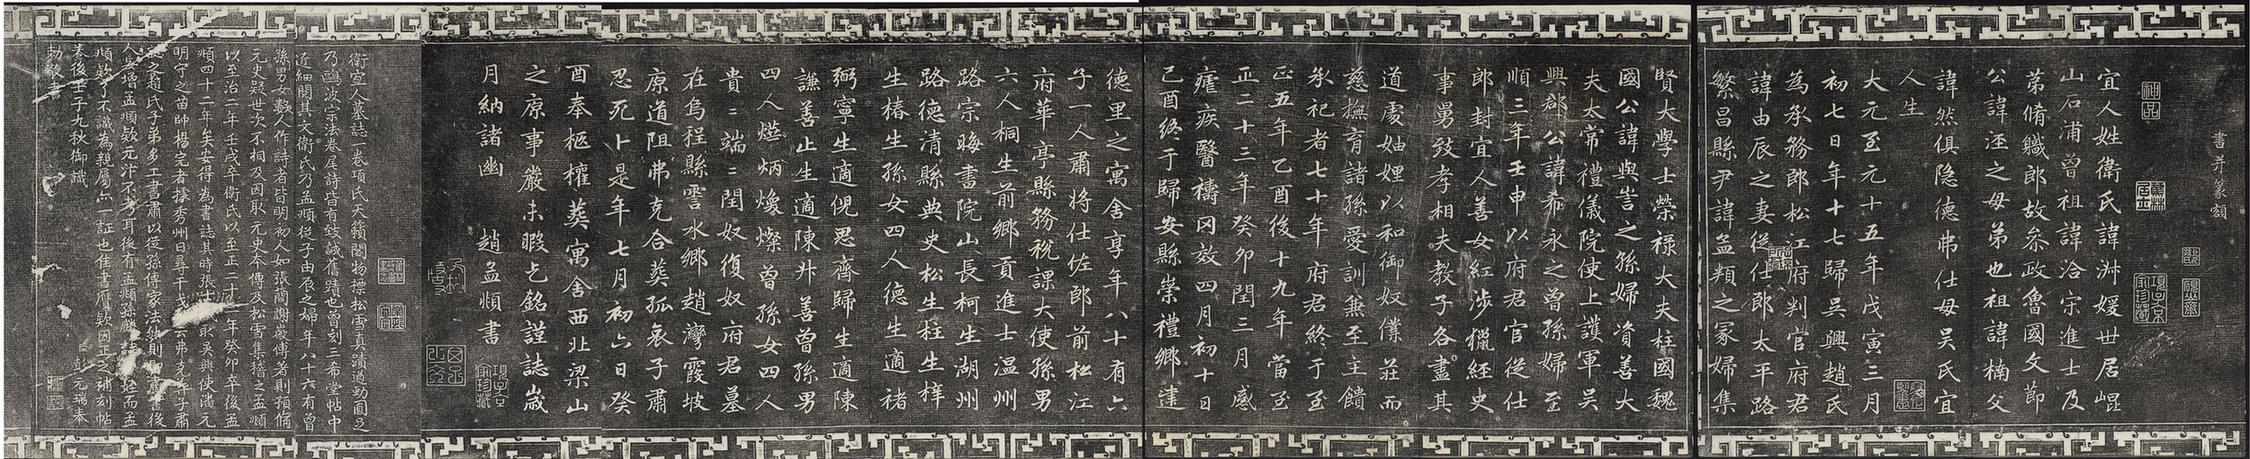 書并篆額
宜人姓衛氏諱淑媛世居崐
山石浦曾祖諱洽宗進士及
第脩職郎故參政魯國文節
公諱涇之母弟也祖諱楠父
諱然俱隐德弗仕母吳氏宜
人生
大元至元十五年戊寅三月
初七日年十七歸吳興趙氏
為承務郎松江府判官府君
諱由辰之妻從仕郎太平路
繁昌縣尹諱孟頖之冢婦集
賢大學士榮祿大夫柱國魏
國公諱與訔之孫婦資善大
夫太常禮儀院使上護軍吳
興郡公諱希永之曾孫婦至
順三年壬申以府君官從仕
郎封宜人善女紅涉獵經史
事舅致孝相夫教子各盡其
道處妯娌以和御奴僕莊而
慈撫育諸孫愛訓兼至主饋
承祀者七十年府君終于至
正五年乙酉後十九年當至
正二十三年癸卯閏三月感
瘧疾醫禱罔效四月初十日
己酉終于歸安縣崇禮鄉建
德里之寓舍享年八十有六
子一人肅將仕佐郎前松江
府華亭縣務稅課大使孫男
六人桐生前鄉貢進士温州
路宗晦書院山長柯生湖州
路德清縣典史松生柱生梓
生椿生孫女四人德生適褚
弼寧生適倪思齊歸生適陳
謙善止生適陳升善曾孫男
四人㷍炳煥燦曾孫女四人
貴二端二閏奴復奴府君墓
在烏程縣霅水鄉趙灣霞坡
原道阻弗克合葬孤哀子肅
忍死卜是年七月初六日癸
酉奉柩權葬寓舍西北梁山
之原事嚴未暇乞銘謹誌歲
月納諸幽　趙孟順書
衛宜人墓誌一卷項氏天籟閣物標松雪真蹟過動圓足
乃鷗波宗法卷尾詩皆有致誠舊蹟也曾刻三希堂帖中
近細閱其文衛氏乃孟順從子由辰之婦年八十六有曾
孫男女數人作詩者皆明初人如張蘭謝徽傅著則預脩
元史疑世次不相及因取元史本傳及松雪集稽之孟順
以至治二年壬戌卒衛氏以至正二十三年癸卯卒後孟
順四十二年矣安得為書誌其時張取吳興使潘元
明守之苗帥楊完者據秀州日尋干戈弗克子肅
趙氏子弟多工書肅以從孫傳家法後
人妄增孟順欵元汴不考耳後有孟順孫麟姪而孟
順欵了不識為親屬点一証也隹書贋欵因正之補刻帖
奉後壬子九秋御識
臣彭元瑞奉
勑敬書
神品